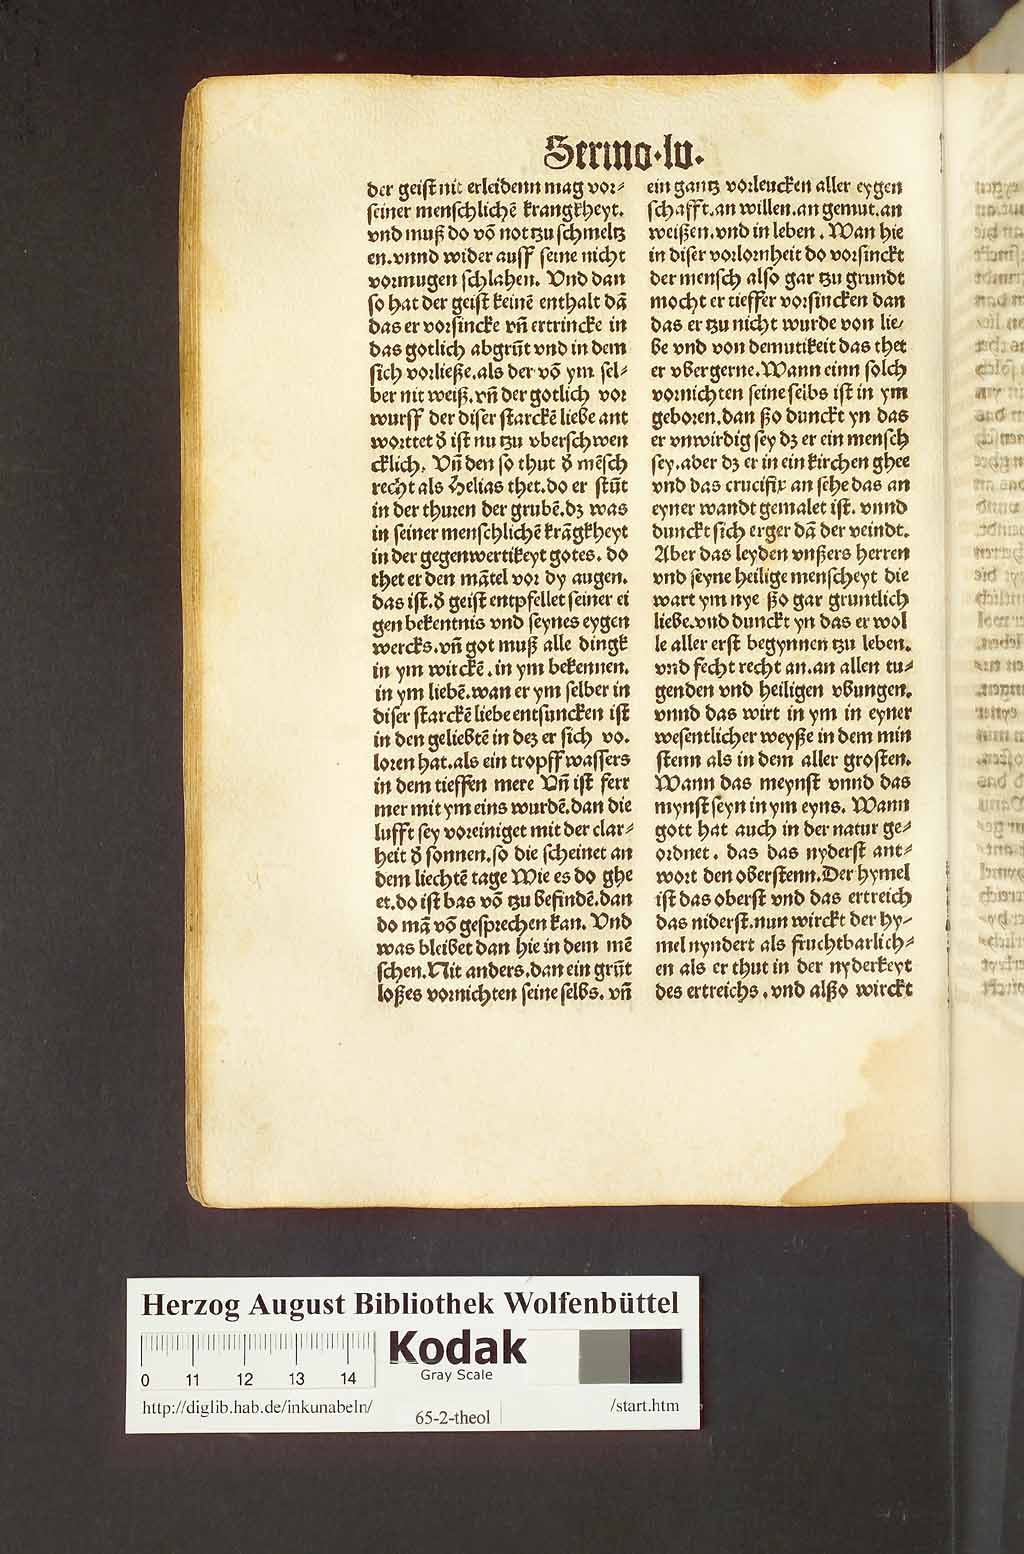 Sermo·lv.
der geist nit erleidenn mag vor⸗
seiner menschlichē krangkheyt.
vnd muß do vō not tzu schmeltz
en.vnnd wider auff seine nicht
vormugen schlahen. Vnd dan
so hat der geist keinē enthalt dā
das er vorsincke vn̄ ertrincke in
das gotlich abgrūt vnd in dem
sich vorließe.als der vō ym sel⸗
ber nit weiß.vn̄ der gotlich vor
wurff der diser starckē liebe ant
worttet d̕ ist nu tzu vberschwen
cklich. Vn̄ den so thut d̕ mēsch
recht als Helias thet.do er stūt
in der thuren der grubē.dz was
in seiner menschlichē krāgkheyt
in der gegenwertikeyt gotes. do
thet er den mātel vor dy augen.
das ist.d̕ geist entpfellet seiner ei
gen bekentnis vnd seynes eygen
wercks.vn̄ got muß alle dingk
in ym wirckē.in ym bekennen.
in ym liebē.wan er ym selber in
diser starckē liebe entsuncken ist
in den geliebtē in dez er sich vo.
loren hat.als ein tropff wassers
in dem tieffen mere Vn̄ ist ferr
mer mit ym eins wurdē.dan die
lufft sey voreiniget mit der clar⸗
heit d̕ sonnen.so die scheinet an
dem liechtē tage Wie es do ghe
et.do ist bas vō tzu befindē.dan
do mā vō gesprechen kan. Vnd
was bleibet dan hie in dem mē
schen.Nit anders.dan ein grūt
loßes vornichten seine selbs. vn̄
ein gantz vorleucken aller eygen
schafft.an willen.an gemut.an
weißen.vnd in leben. Wan hie
in diser vorlornheit do vorsinckt
der mensch also gar tzu grundt
mocht er tieffer vorsincken dan
das er tzu nicht wurde von lie⸗
be vnd von demutikeit das thet
er vbergerne.Wann einn solch
vornichten seine selbs ist in ym
geboren.dan ßo dunckt yn das
er vnwirdig sey dz er ein mensch
sey.aber dz er in ein kirchen ghee
vnd das crucifix an sehe das an
eyner wandt gemalet ist. vnnd
dunckt sich erger dā der veindt.
Aber das leyden vnßers herren
vnd seyne heilige menscheyt die
wart ym nye ßo gar gruntlich
liebe.vnd dunckt yn das er wol
le aller erst begynnen tzu leben.
vnd fecht recht an.an allen tu⸗
genden vnd heiligen vbungen.
vnnd das wirt in ym in eyner
wesentlicher weyße in dem min
stenn als in dem aller grosten.
Wann das meynst vnnd das
mynst seyn in ym eyns. Wann
gott hat auch in der natur ge⸗
ordnet. das das nyderst ant⸗
wort den oberstenn.Der hymel
ist das oberst vnd das ertreich
das niderst.nun wirckt der hy⸗
mel nyndert als fruchtbarlich⸗
en als er thut in der nyderkeyt
des ertreichs.vnd alßo wirckt
Herzog August Bibliothek Wolfenbüttel
Kodak
Gray Scale
0 11 12 13 14
http://diglib.hab.de/inkunabeln/
65-2-theol
/start.htm